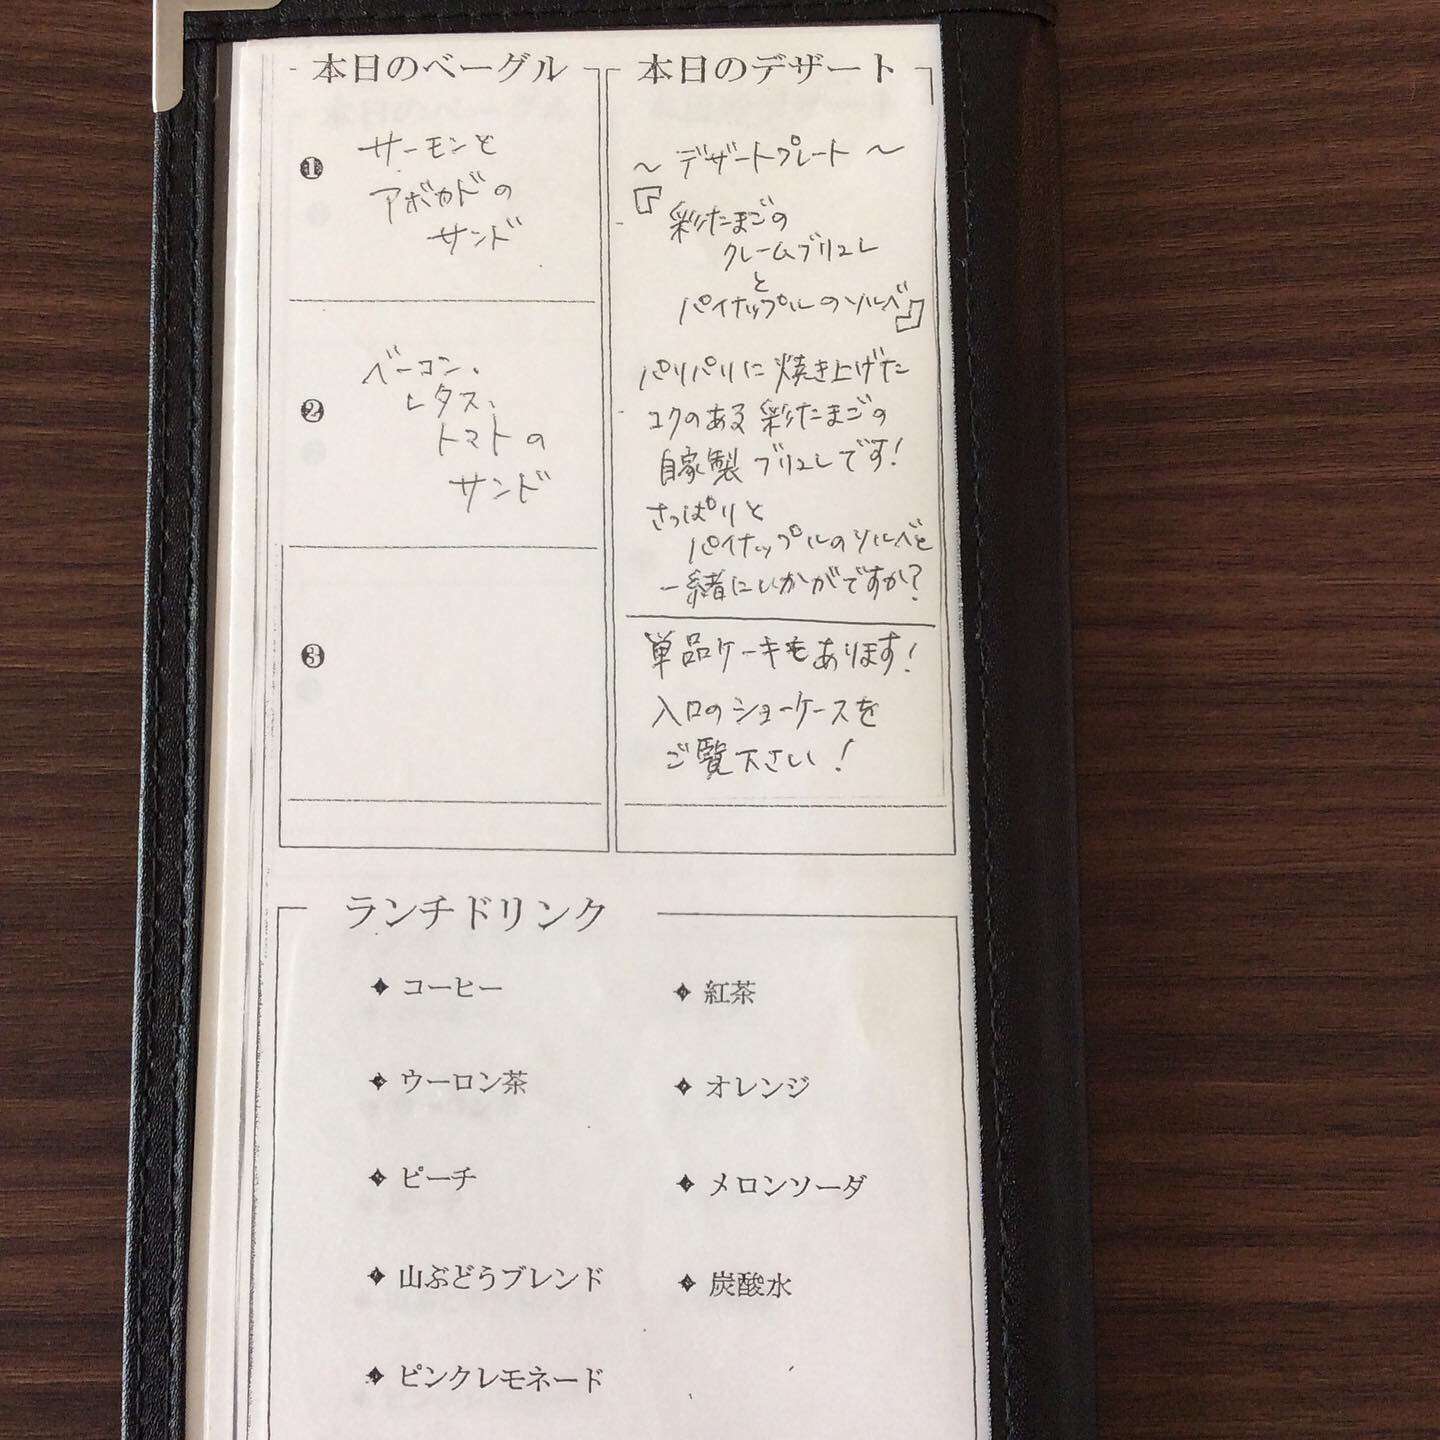 本日のベーグル
❶
サーモンと
アボカドの
サンド
❷
ベーコン、
レタス、
トマトの
サンド
❸
本日のデザート
～デザートプレート～
『彩たまごの
クレームブリュレ
と
パイナップルのソルベ』
パリパリに焼き上げた
コクのある彩たまごの
自家製ブリュレです!
さっぱりと
パイナップルのソルベと
一緒にいかがですか?
単品ケーキもあります!
入口のショーケースを
ご覧下さい!
ランチドリンク
コーヒー
紅茶
ウーロン茶
オレンジ
ピーチ
メロンソーダ
山ぶどうブレンド
炭酸水
ピンクレモネード